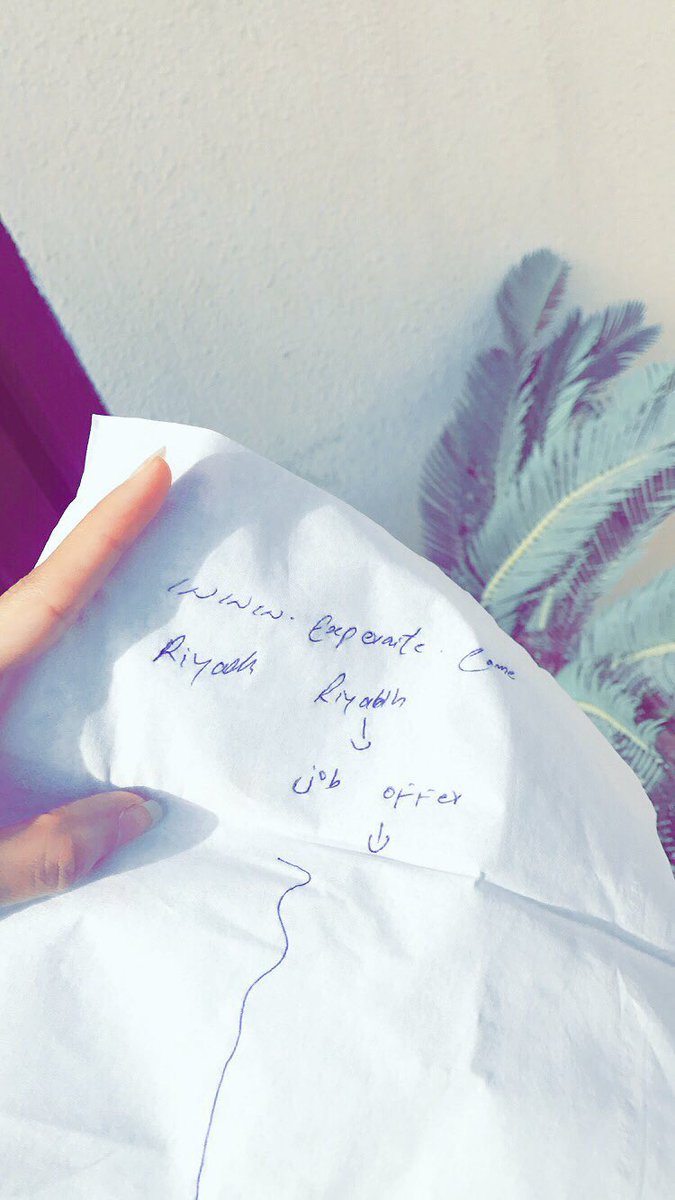 www. Experaite. Come
Riyadh
Riyadh
job offer